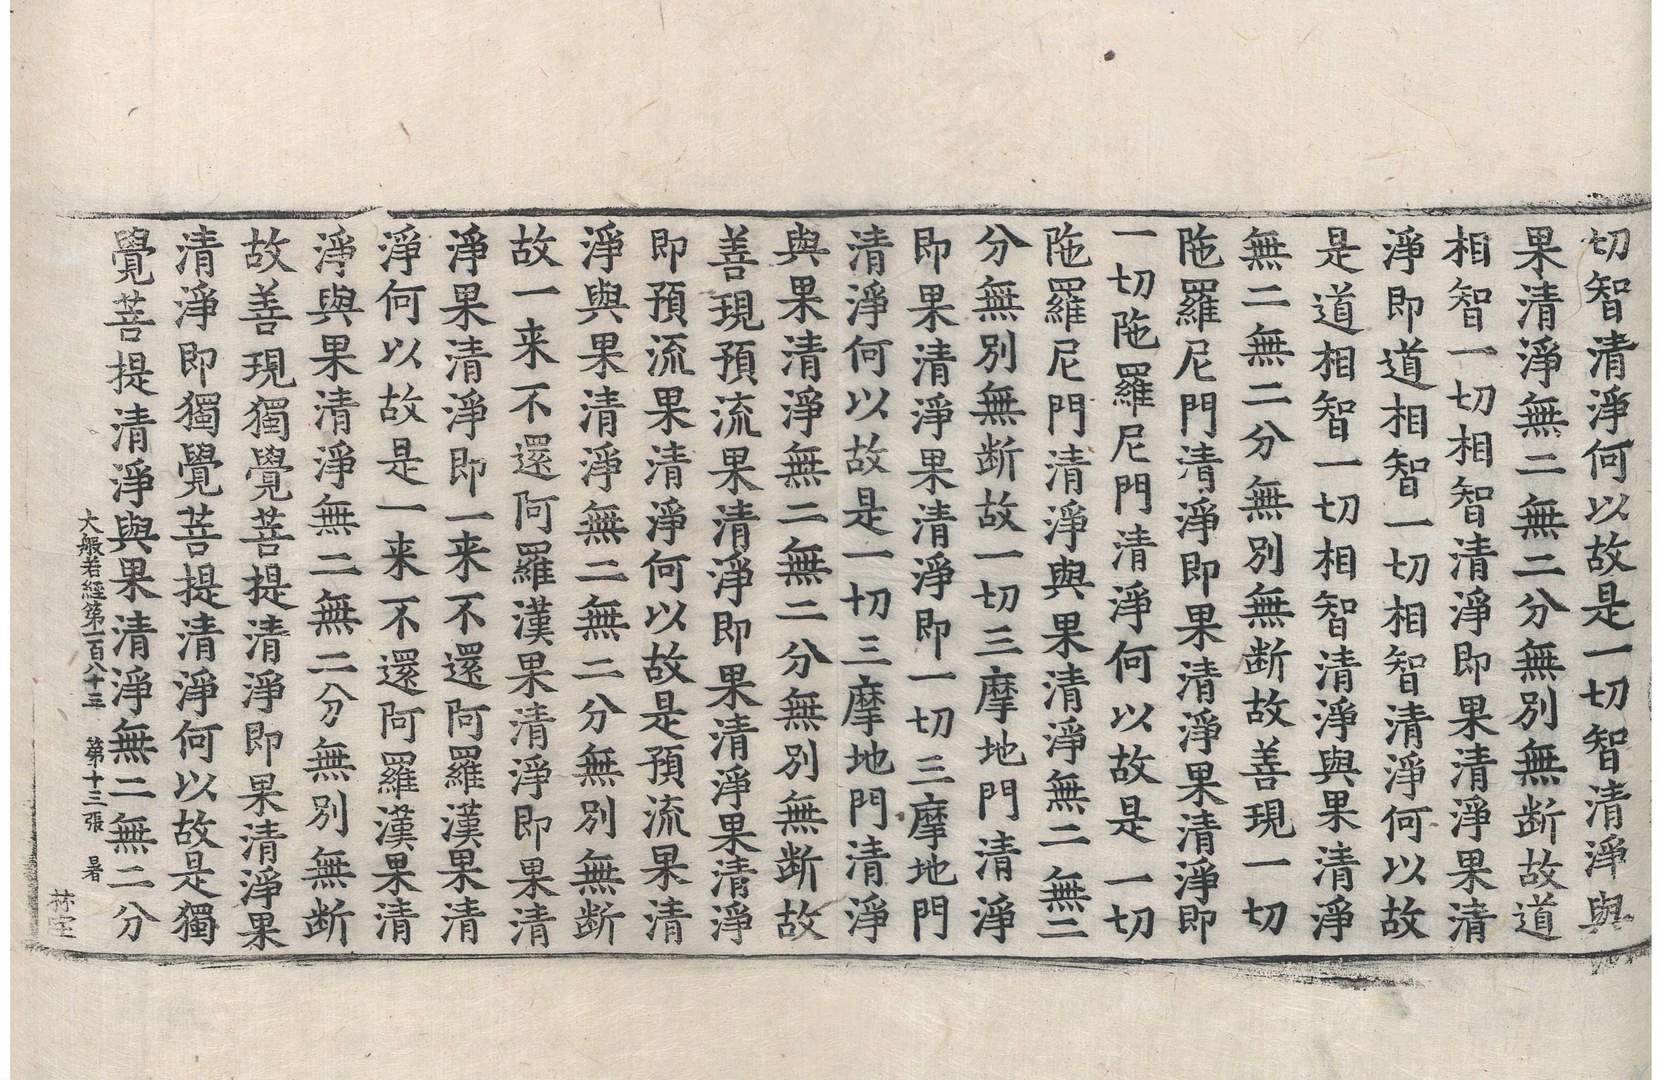 切智清淨何以故是一切智清淨與
果清淨無二無二分無別無断故道
相智一切相智清淨即果清淨果清
淨即道相智一切相智清淨何以故
是道相智一切相智清淨與果清淨
無二無二分無別無断故善現一切
陁羅尼門清淨即果清淨果清淨即
一切陁羅尼門清淨何以故是一切
陁羅尼門清淨與果清淨無二無二
分無別無断故一切三摩地門清淨
即果清淨果清淨即一切三摩地門
清淨何以故是一切三摩地門清淨
與果清淨無二無二分無別無断故
善現預流果清淨即果清淨果清淨
即預流果清淨何以故是預流果清
淨與果清淨無二無二分無別無断
故一来不還阿羅漢果清淨即果清
淨果清淨即一来不還阿羅漢果清
淨何以故是一来不還阿羅漢果清
淨與果清淨無二無二分無別無断
故善現獨覺菩提清淨即果清淨果
清淨即獨覺菩提清淨何以故是獨
覺菩提清淨與果清淨無二無二分
大般若經第一百八十三 第十三張 暑